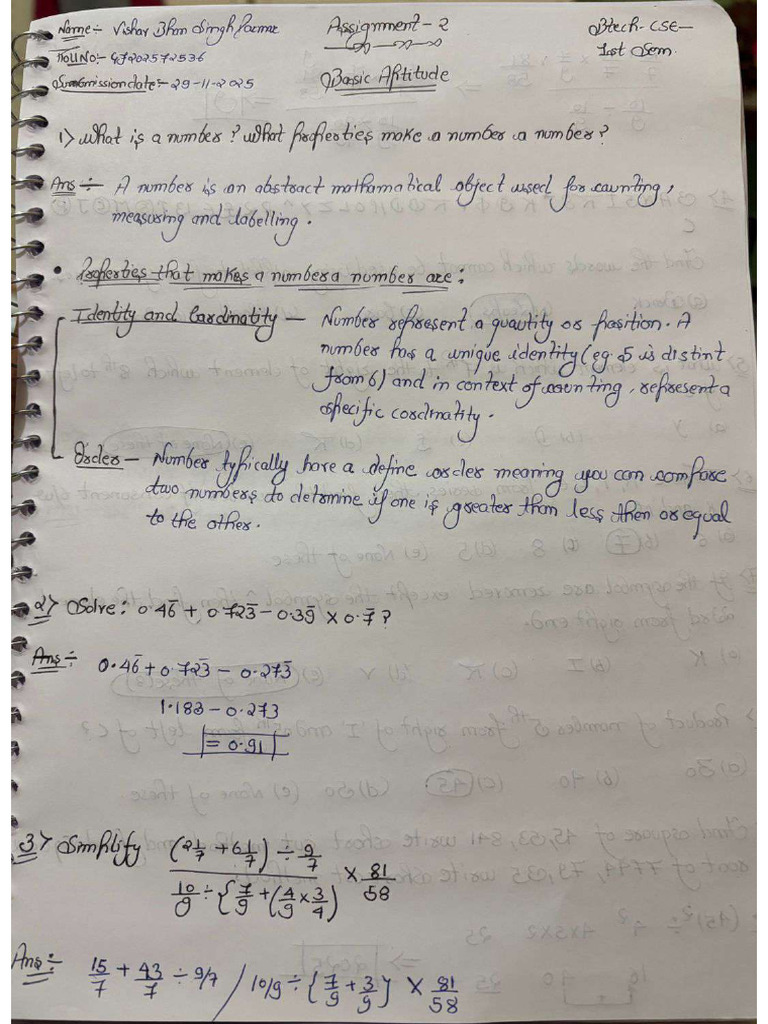 Name:- Vishav Bhan Singh Parmar
Assignment - 2
Btech-CSE-
1st Sem.
Roll No:-
Submmission date:- 29-11-2025
Basic Aptitude
1> What is a number? What properties make a number a number?
Ans:- A number is an abstract mathamatical object used for counting,
measuring and labelling.
• Properties that makes a number a number are:
Identity and Cardinality — Number represent a quantity or position. A
number has a unique identity (eg. 5 is distint
from 6) and in context of counting, represent a
specific cordinality.
Order — Number typically have a define order meaning you can compare
two numbers to detrmine if one is greater than less then or equal
to the other.
2> Solve: 0.46̅ + 0.723̅ - 0.39̅ × 0.7̅ ?
Ans:- 0.46̅ + 0.723̅ - 0.273̅
1.183 - 0.273
= 0.91
3> Simplify (2 1/7 + 6 1/7) ÷ 9/7 / 10/9 ÷ {7/9 + (4/9 × 3/4) × 81/58
Ans:- 15/7 + 43/7 ÷ 9/7 / 10/9 ÷ {7/9 + 3/9} × 81/58